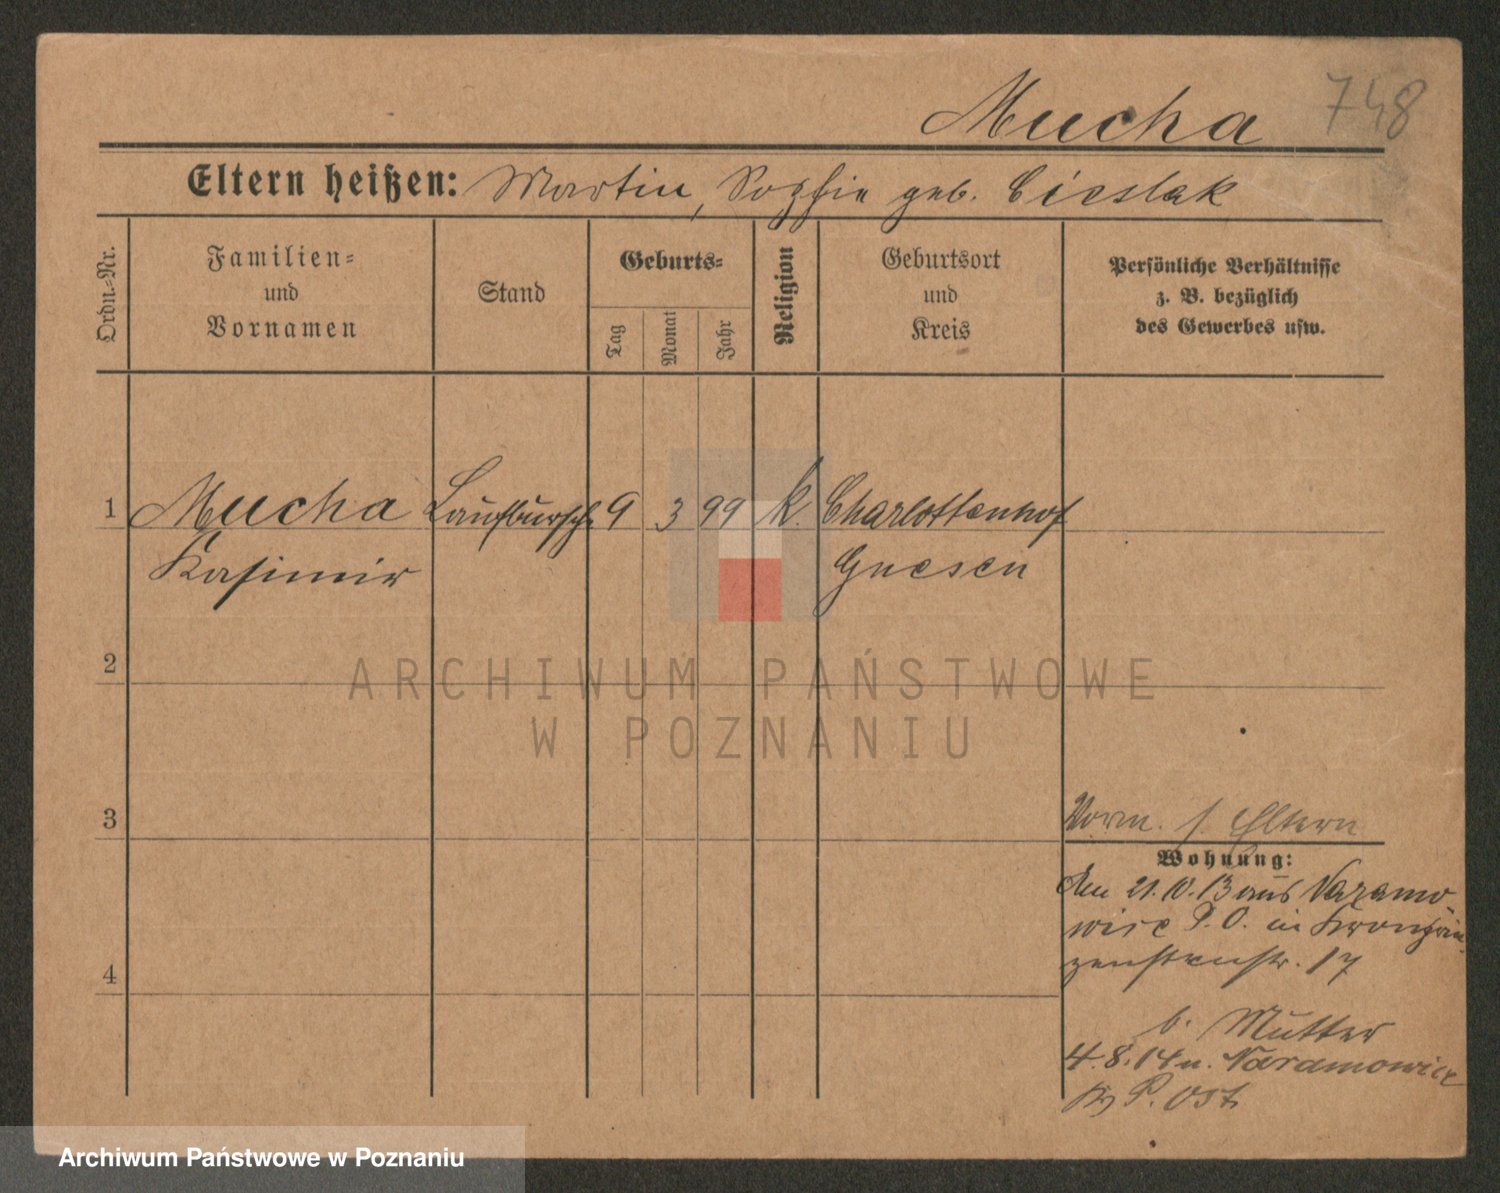 Mucha 748
Eltern heißen: Martin, Sophie geb. Cieslak
Ordn.=Nr.
Familien=
und
Vornamen
Stand
Geburts=
Tag
Monat
Jahr
Religion
Geburtsort
und
Kreis
Persönliche Verhältnisse
z. B. bezüglich
des Gewerbes usw.
1 Mucha Laufbursche 9 3 99 k. Charlottenhof
Kasimir Gnesen
2
ARCHIWUM PAŃSTWOWE
W POZNANIU
3
Vorm. s. Eltern
Wohnung:
Am 21.10.13 aus Naramo-
wice P. O. in Kronprin-
zenstr. 17
4
b. Mutter
4.8.14 n. Naramowice
P. Ost
Archiwum Państwowe w Poznaniu